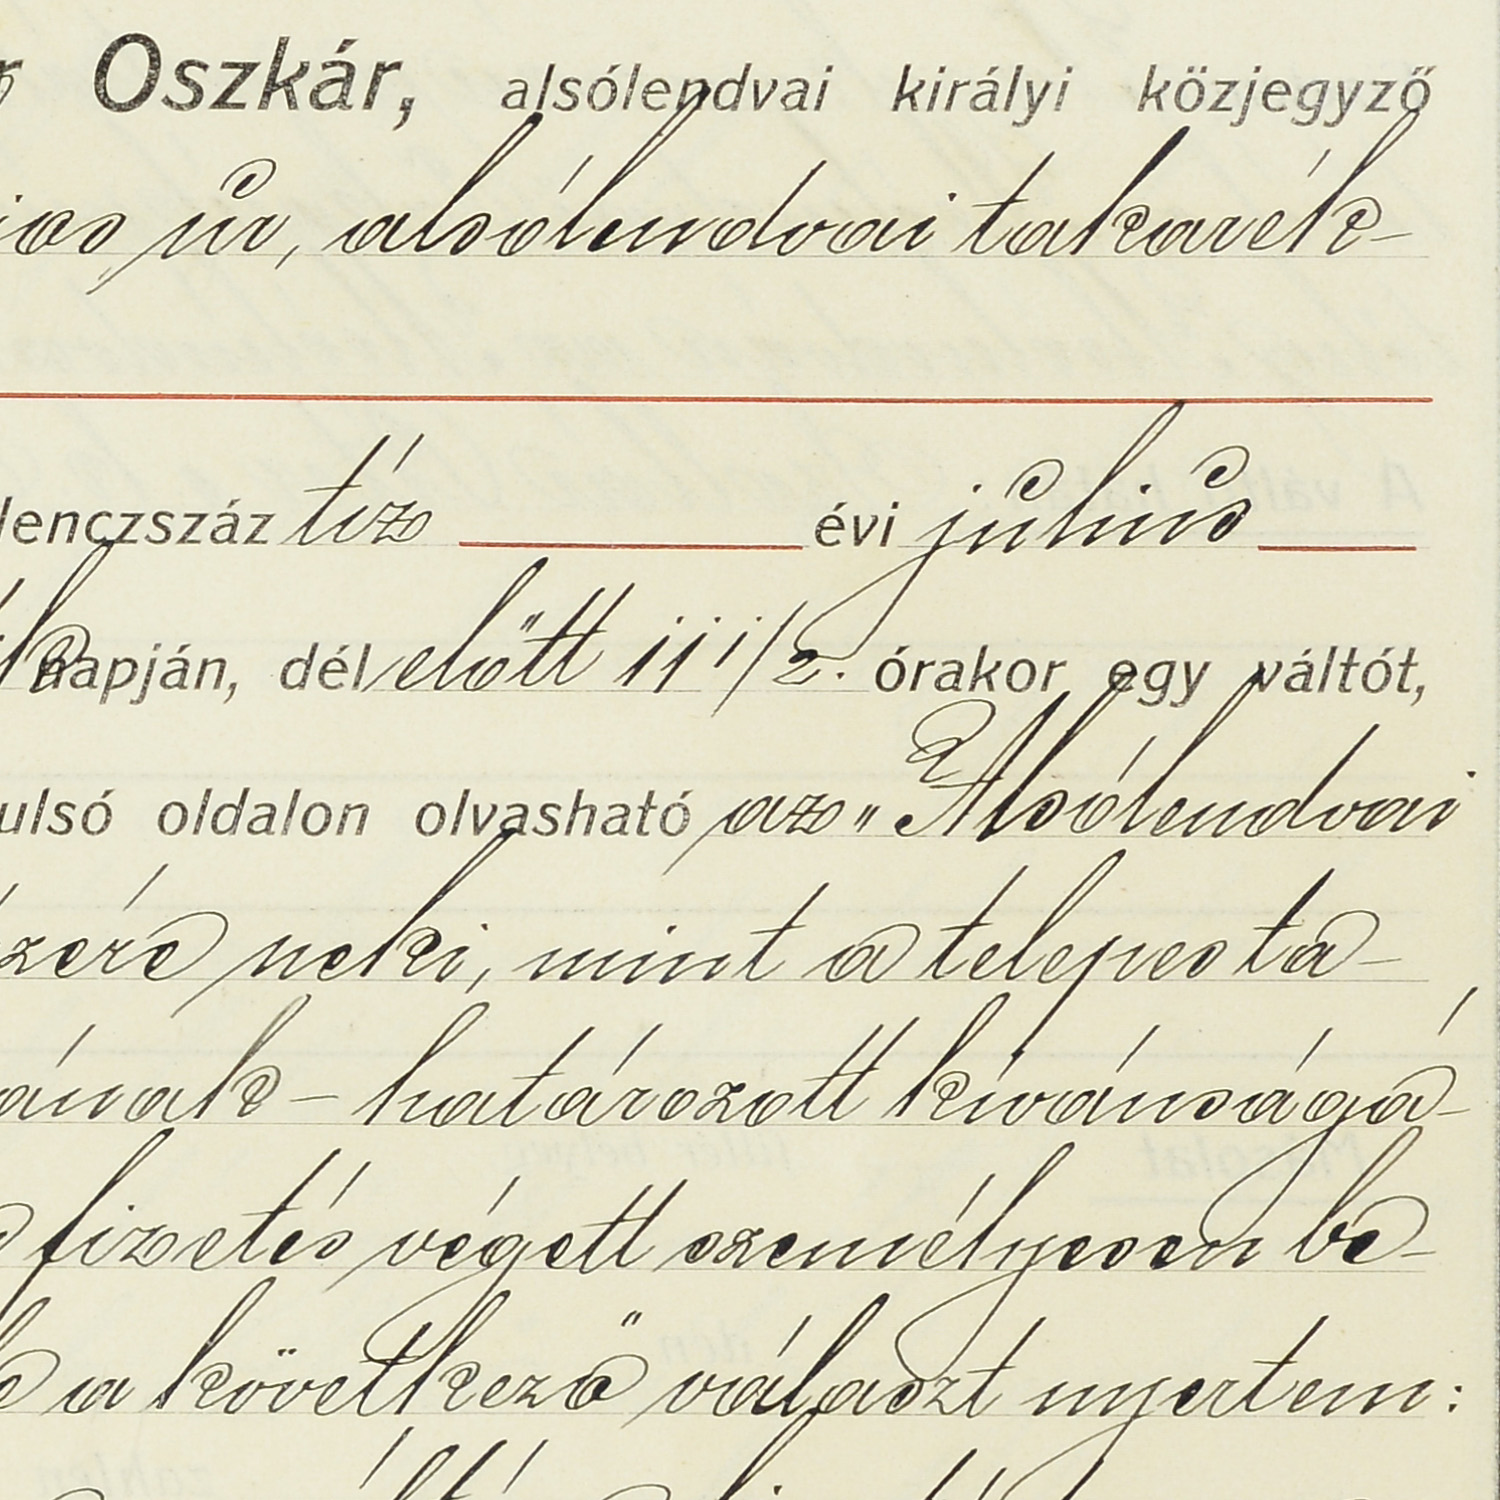 Oszkár, alsólendvai királyi közjegyző
úr, alsólendvai takarék-
lenczszáz tíz évi július
napján, dél előtt 11 1/2. órakor egy váltót,
ulsó oldalon olvasható az „Alsólendvai
zére neki, mint a telepesta-
ának – határozott kívánságá-
fizetés végett személyesen be-
a következő választ nyertem: